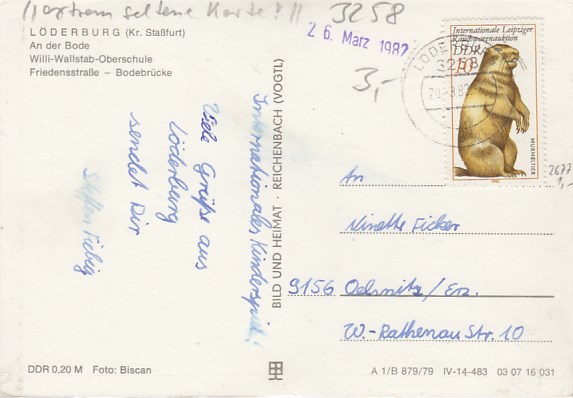 !!extrem seltene Karte!!!
3258
26. März 1982
3,-
LÖDERBURG (Kr. Staßfurt)
An der Bode
Willi-Wallstab-Oberschule
Friedensstraße – Bodebrücke
Internationale Leipziger
Rauchwarenauktion
DDR
10
MURMELTIER
LÖDERBURG
3258
2677
1,-
Internationales Kinderspiel!
Viele Grüße aus
Löderburg
sendet Dir
Steffen Fiebig
BILD UND HEIMAT · REICHENBACH (VOGTL)
An
Ninette Ficker
9156 Oelsnitz/Erz.
W.-Rathenau Str. 10
DDR 0,20 M Foto: Biscan
A 1/B 879/79 IV-14-483 03 07 16 031